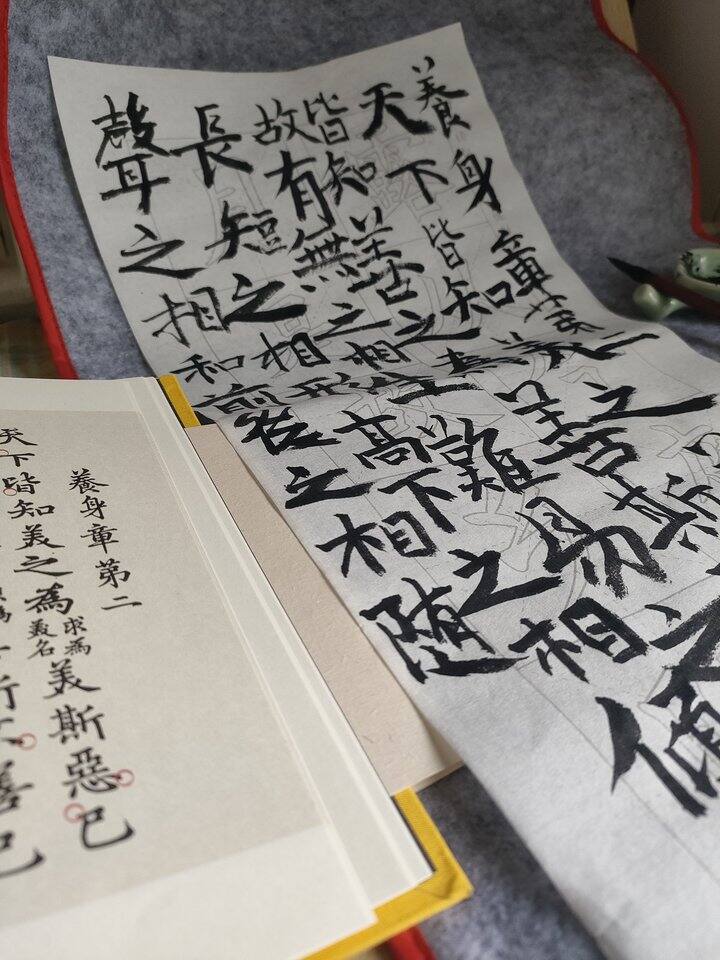 養身章第二
天下皆知美之
皆知善之為善斯
故有無之相生難易之
長短之相形高下之相傾
聲之相和前后之相随
養身章第二
天下皆知美之為求為美名美斯惡已
善已